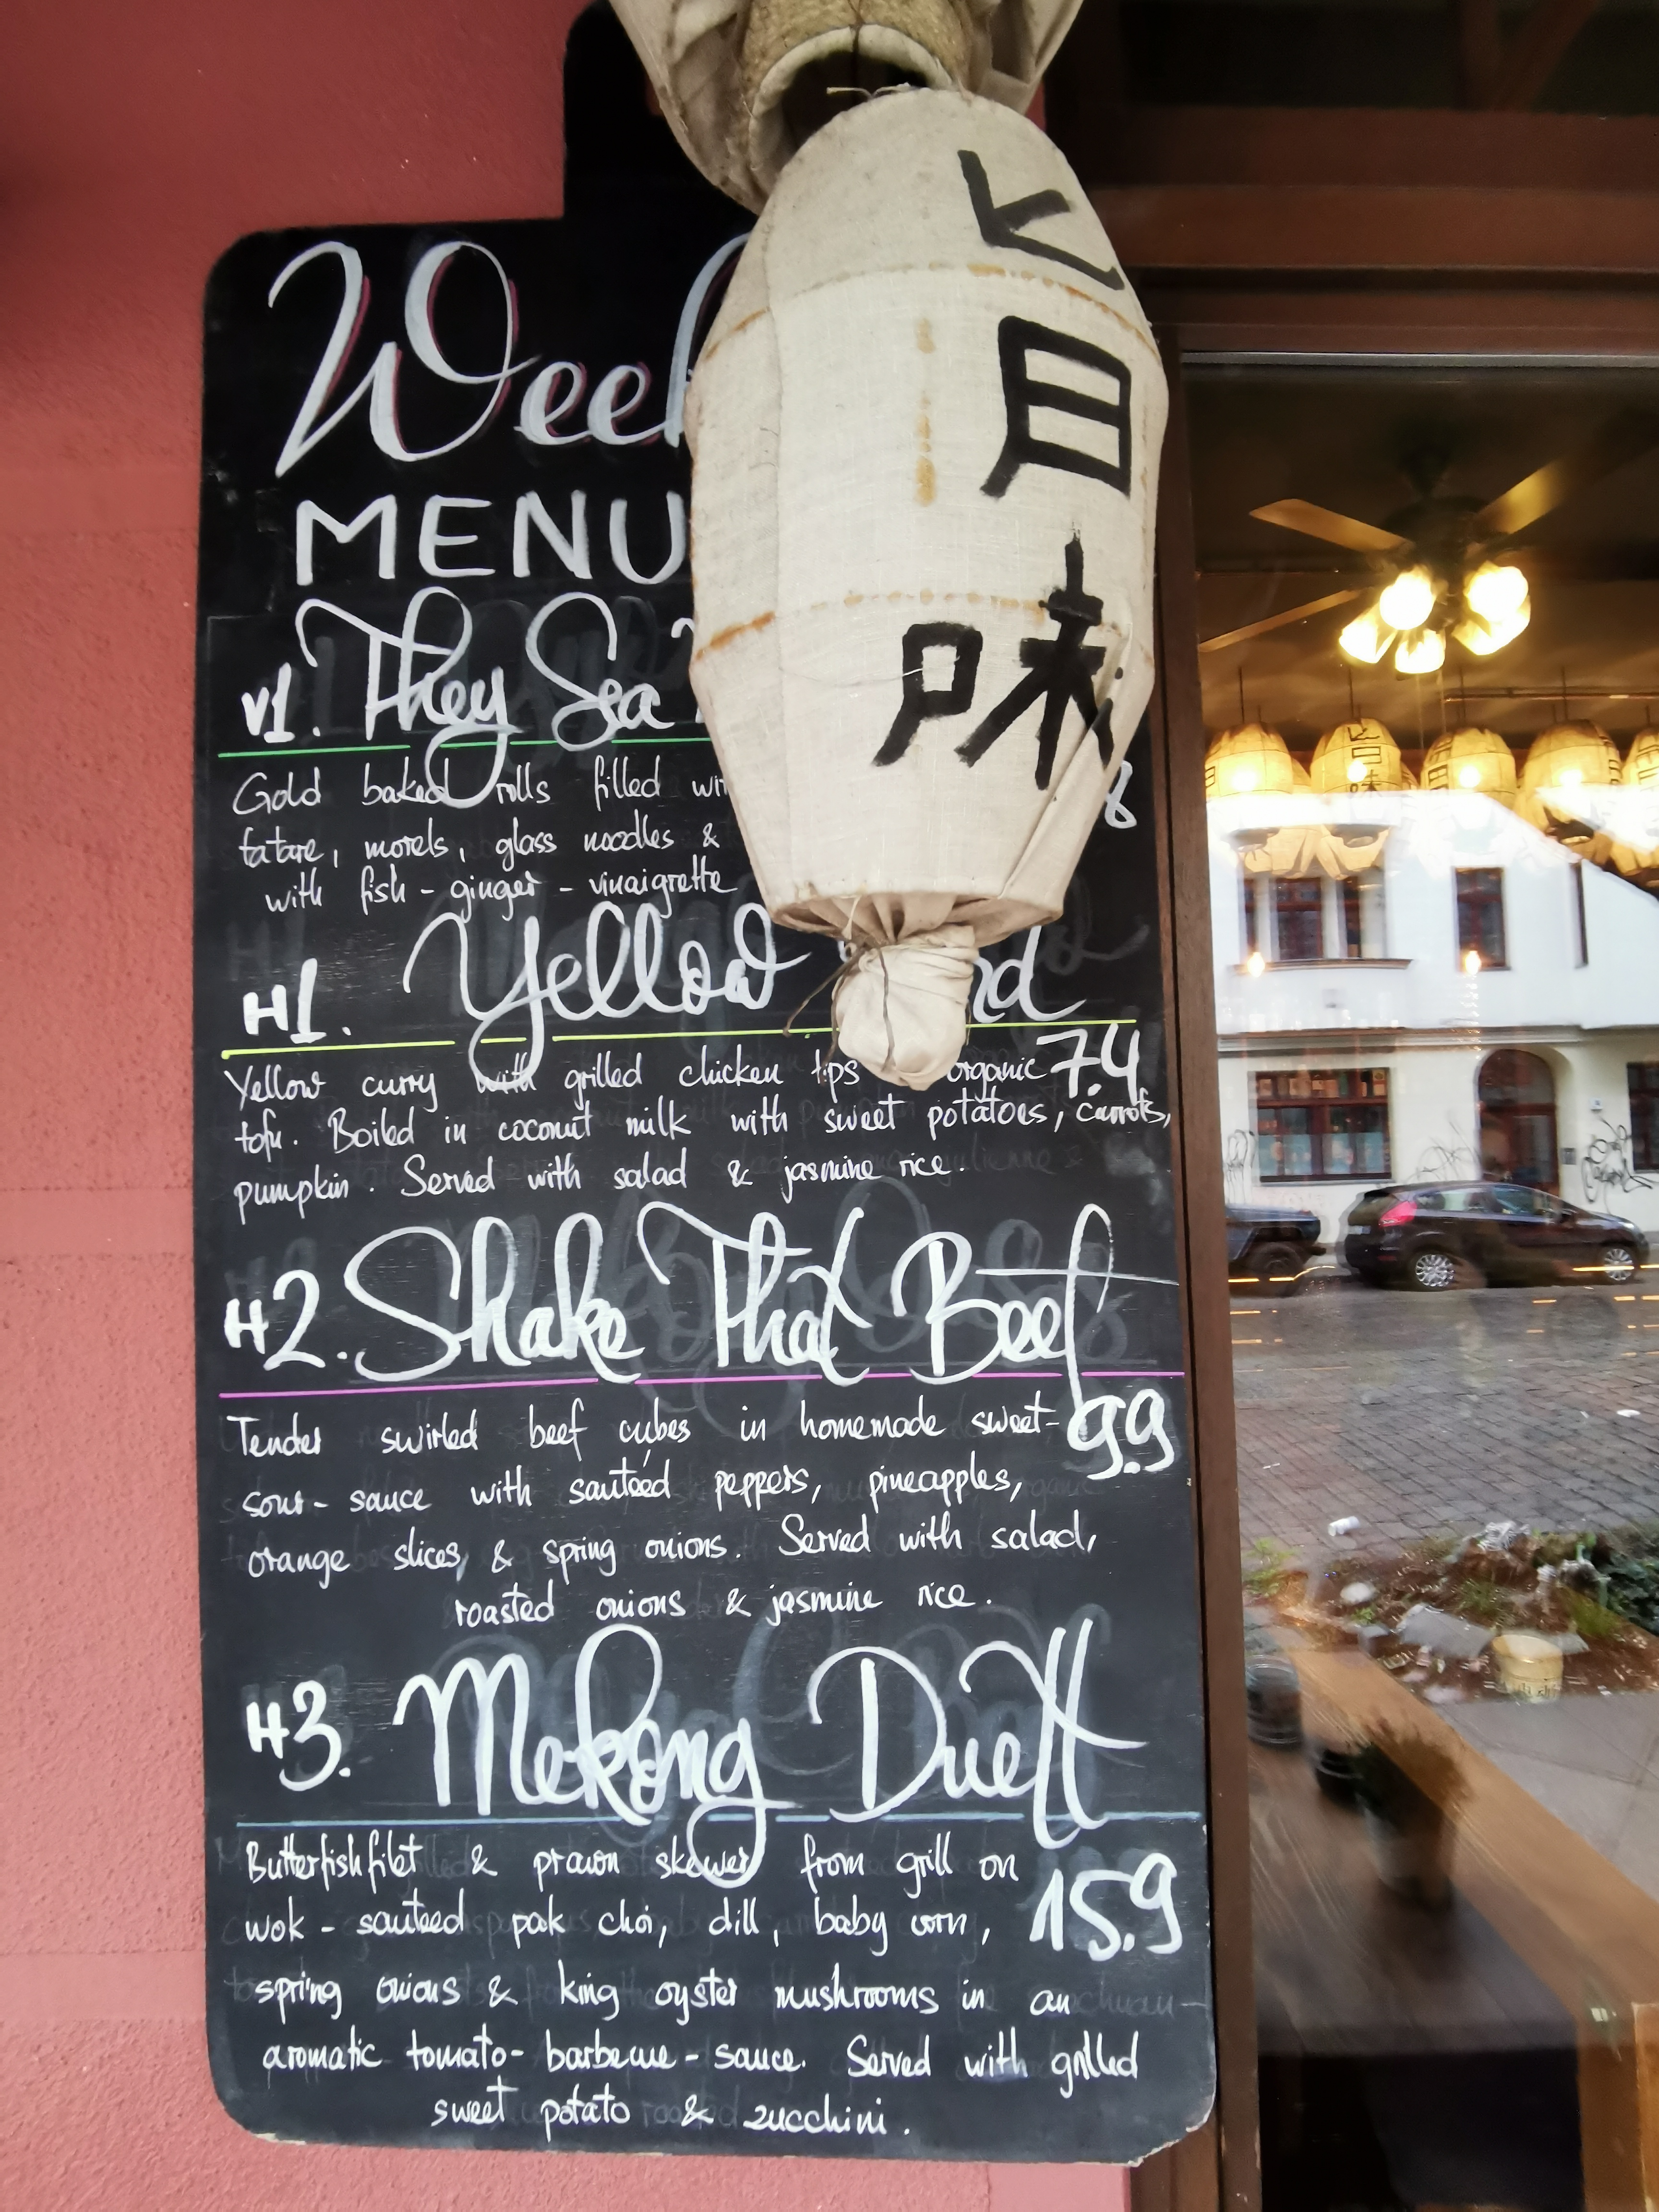 MENU
v1. They Sea
Gold baked rolls filled
tatare, morels, glass noodles &
with fish - ginger - vinaigrette
8
H1. Yellow
7.4
Yellow curry with grilled chicken tips organic
tofu. Boiled in coconut milk with sweet potatoes, carrots,
pumpkin. Served with salad & jasmine rice.
H2. Shake That Beef
9.9
Tender swirled beef cubes in homemade sweet-
sour- sauce with sauteéd peppers, pineapples,
orange slices, & spring onions. Served with salad,
roasted onions & jasmine rice.
H3. Mekong Duett
Butterfishfilet & prawn skewer from grill on
15.9
wok - sauteed pak choi, dill, baby corn,
spring onions & king oyster mushrooms in an
aromatic tomato- barbecue - sauce. Served with grilled
sweet potato & zucchini.
旨
味